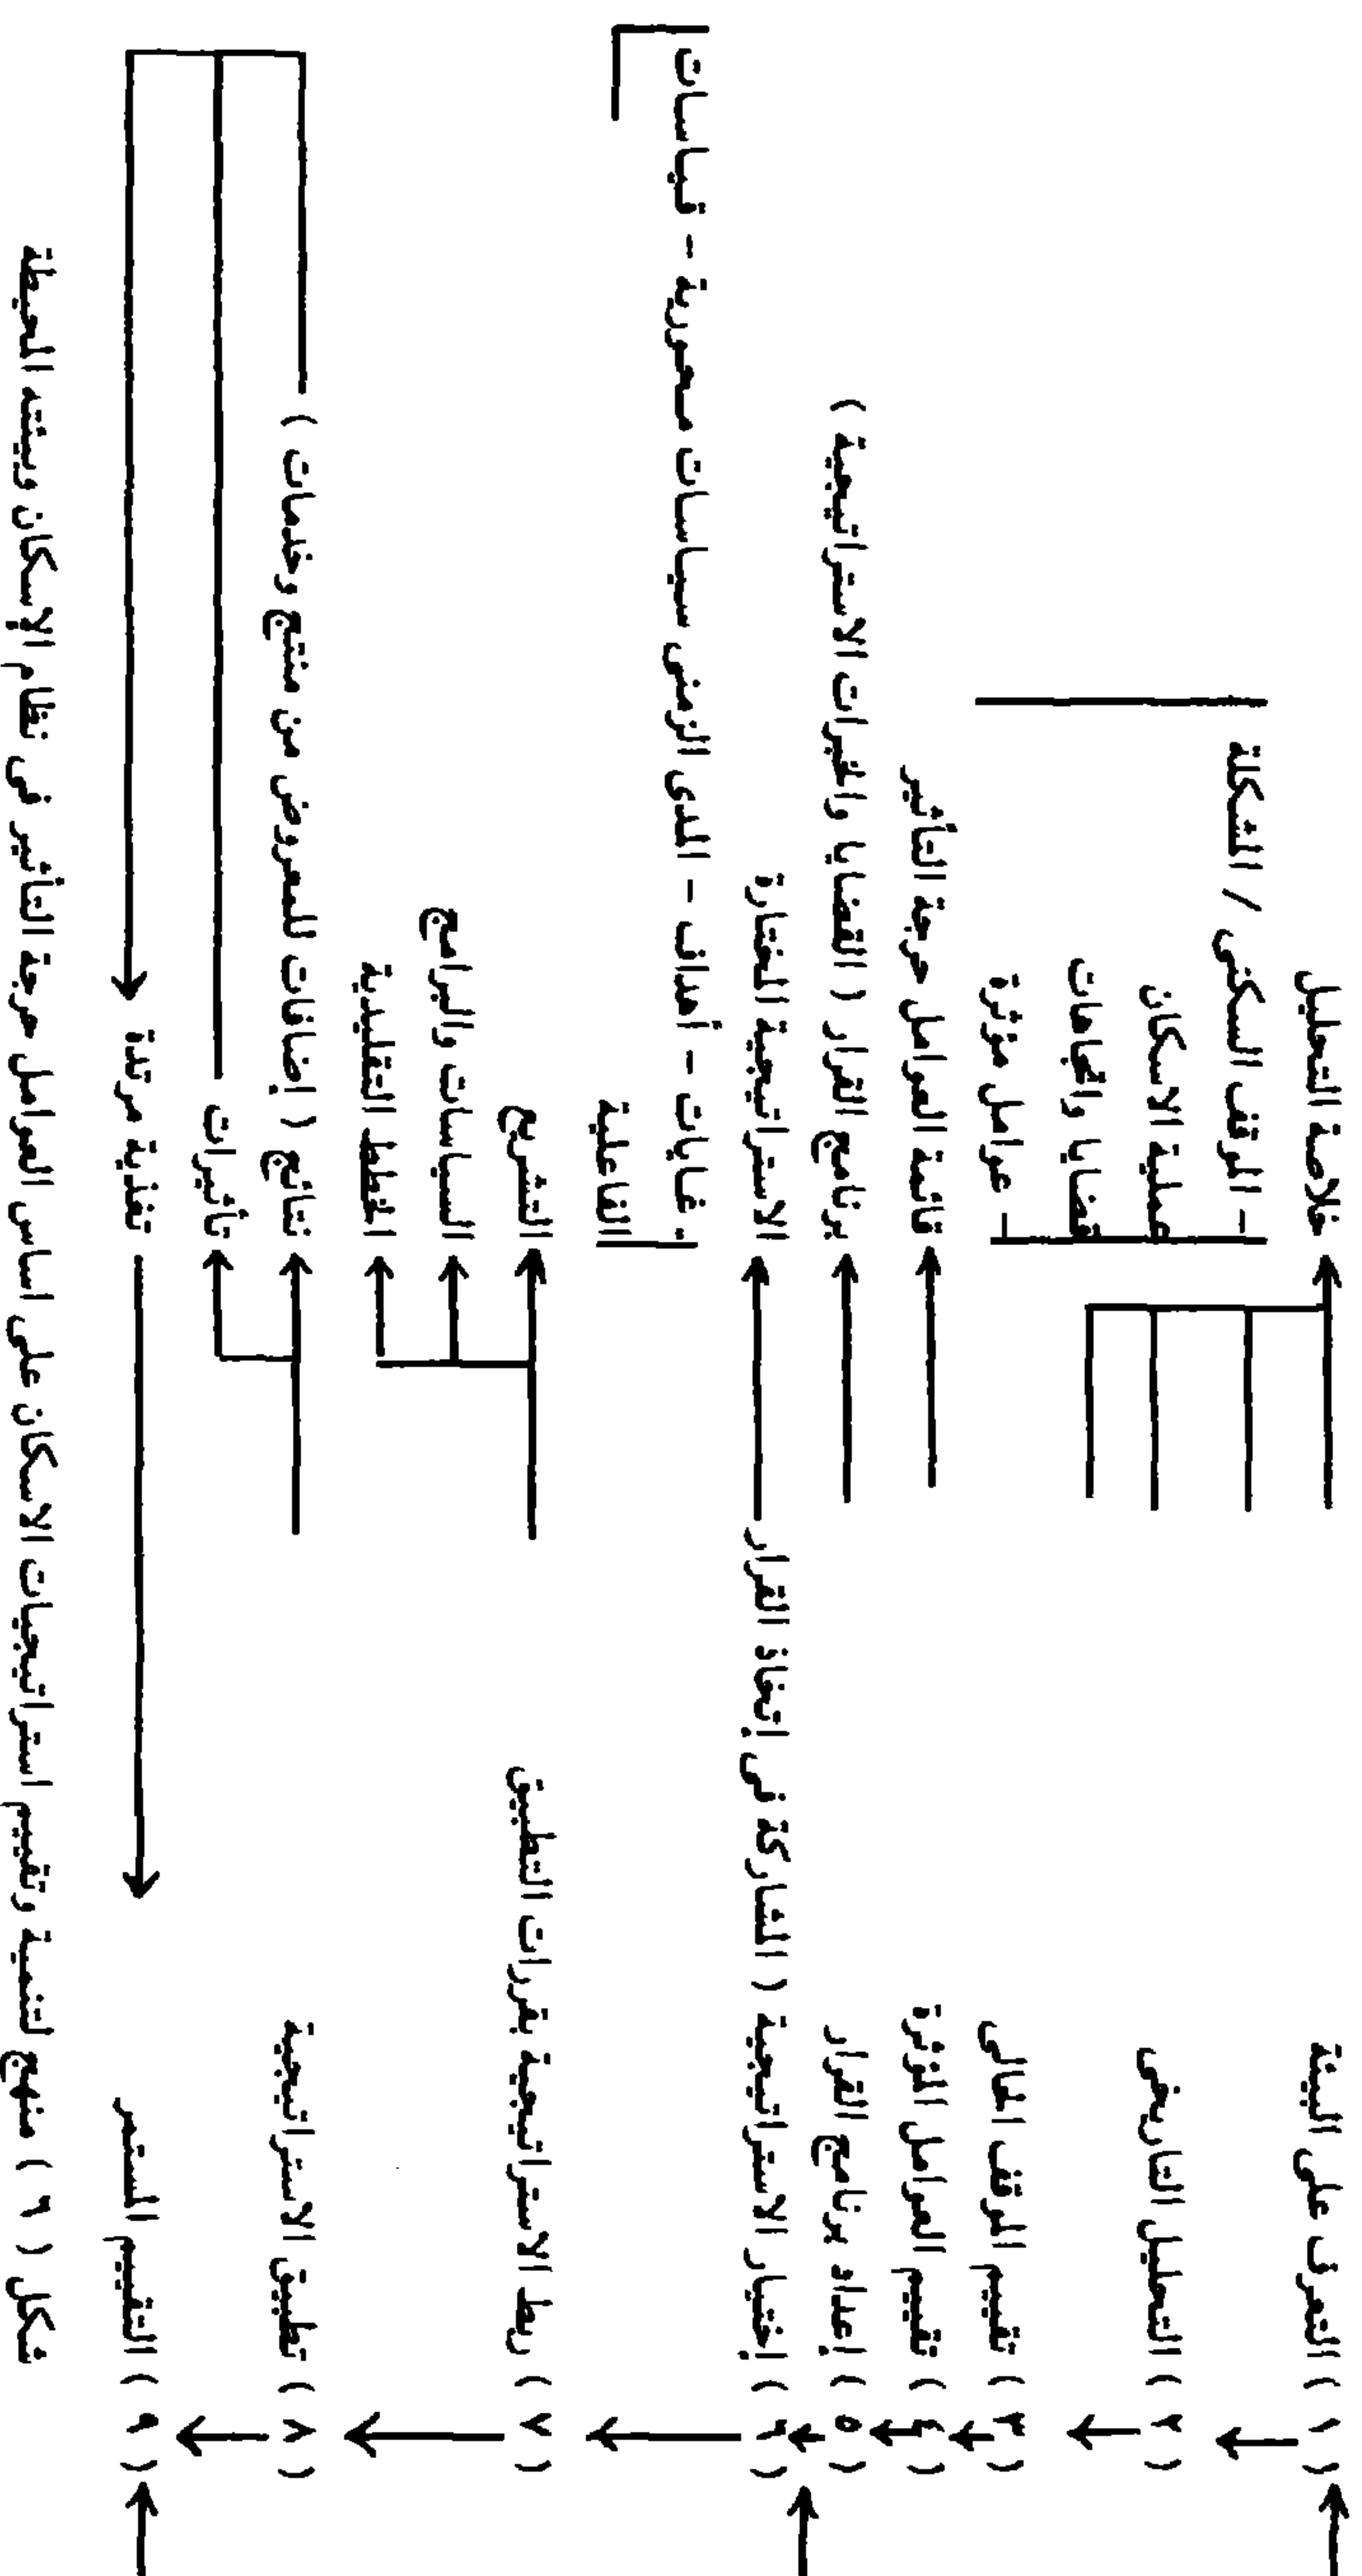 ( ١ ) التعرف على البيئة
خلاصة التحليل
- الموقف السكنى / المشكلة
( ٢ ) التحليل التاريخى
عملية الاسكان
قضايا واتجاهات
( ٣ ) تقييم الموقف الحالى
- عوامل مؤثرة
( ٤ ) تقييم العوامل المؤثرة
قائمة العوامل حرجة التأثير
( ٥ ) إعداد برنامج القرار
برنامج القرار ( القضايا والخبرات الاستراتيجية )
( ٦ ) إختيار الاستراتيجية ( المشاركة فى إتخاذ القرار
الاستراتيجية المختارة
. غايات - أهداف - المدى الزمنى سياسات محورية - قياسات
الفاعلية
( ٧ ) ربط الاستراتيجية بقررات التطبيق
التشريع
السياسات والبرامج
الخطط التقليدية
( ٨ ) تطبيق الاستراتيجية
نتائج ( إضافات للمعروض من منتج وخدمات )
تأثيرات
( ٩ ) التقييم المستمر
تغذية مرتدة
شكل ( ٦ ) منهج لتنمية وتقييم استراتيجيات الاسكان على اساس العوامل حرجة التأثير فى نظام الإسكان وبيئته المحيطة